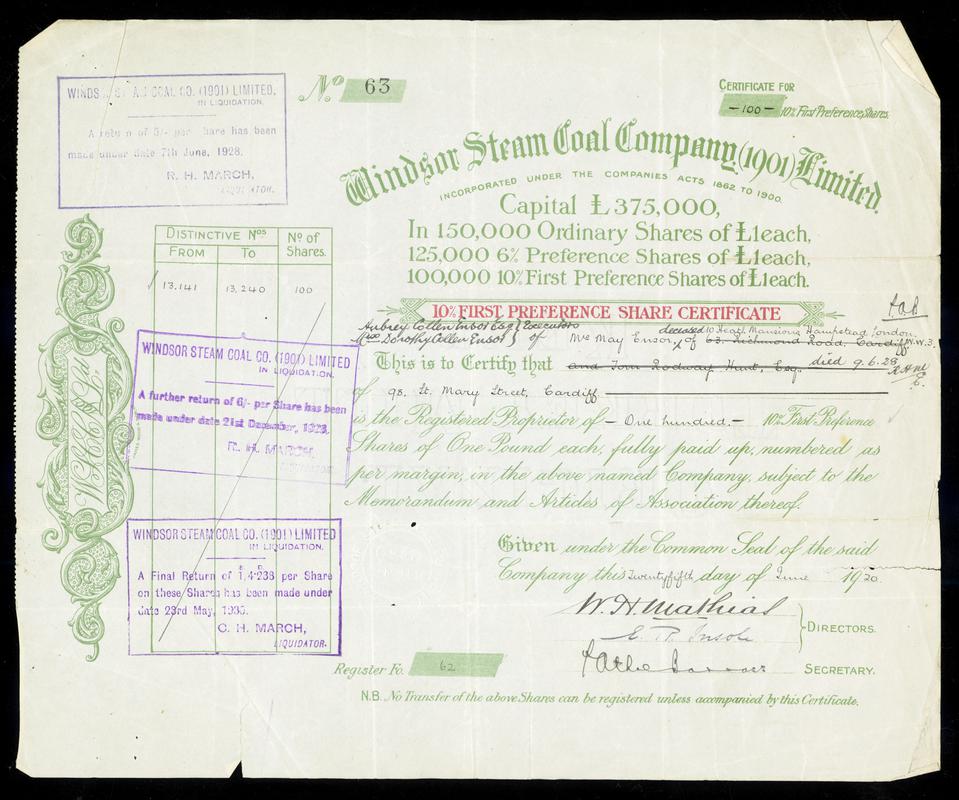 WINDSOR STEAM COAL CO. (1901) LIMITED.
IN LIQUIDATION.
A return of 5/- per share has been
made under date 7th June, 1928.
R. H. MARCH,
LIQUIDATOR.
No 63
CERTIFICATE FOR
- 100 - 10% First Preference Shares.
Windsor Steam Coal Company (1901) Limited.
INCORPORATED UNDER THE COMPANIES ACTS 1862 TO 1900.
Capital £375,000,
In 150,000 Ordinary Shares of £1 each,
125,000 6% Preference Shares of £1 each,
100,000 10% First Preference Shares of £1 each.
DISTINCTIVE Nos
FROM To
No of Shares.
13,141 13,240 100
10% FIRST PREFERENCE SHARE CERTIFICATE
Aubrey Collen Ensor Esq } Executors
Dorothy Collen Ensor } of Mrs May Ensor, deceased of 10 Heath Mansions Hampstead London, N.W.3.
63, Richmond Road, Cardiff
This is to Certify that and Tom Rodway Hunt, Esq. died 9.6.28
of 98, St. Mary Street, Cardiff
is the Registered Proprietor of - One hundred - 10% First Preference
Shares of One Pound each, fully paid up, numbered as
per margin, in the above named Company, subject to the
Memorandum and Articles of Association thereof.
WINDSOR STEAM COAL CO. (1901) LIMITED
IN LIQUIDATION.
A further return of 6/- per Share has been
made under date 21st December, 1928.
R. H. MARCH,
LIQUIDATOR.
WINDSOR STEAM COAL CO. (1901) LIMITED
IN LIQUIDATION.
A Final Return of 1/4·238 per Share
on these Shares has been made under
date 23rd May, 1930.
C. H. MARCH,
LIQUIDATOR.
Given under the Common Seal of the said
Company this Twenty fifth day of June 1920
W. H. Mathias
E. R. Insole
DIRECTORS.
SECRETARY.
Register Fo. 62
N.B. No Transfer of the above Shares can be registered unless accompanied by this Certificate.